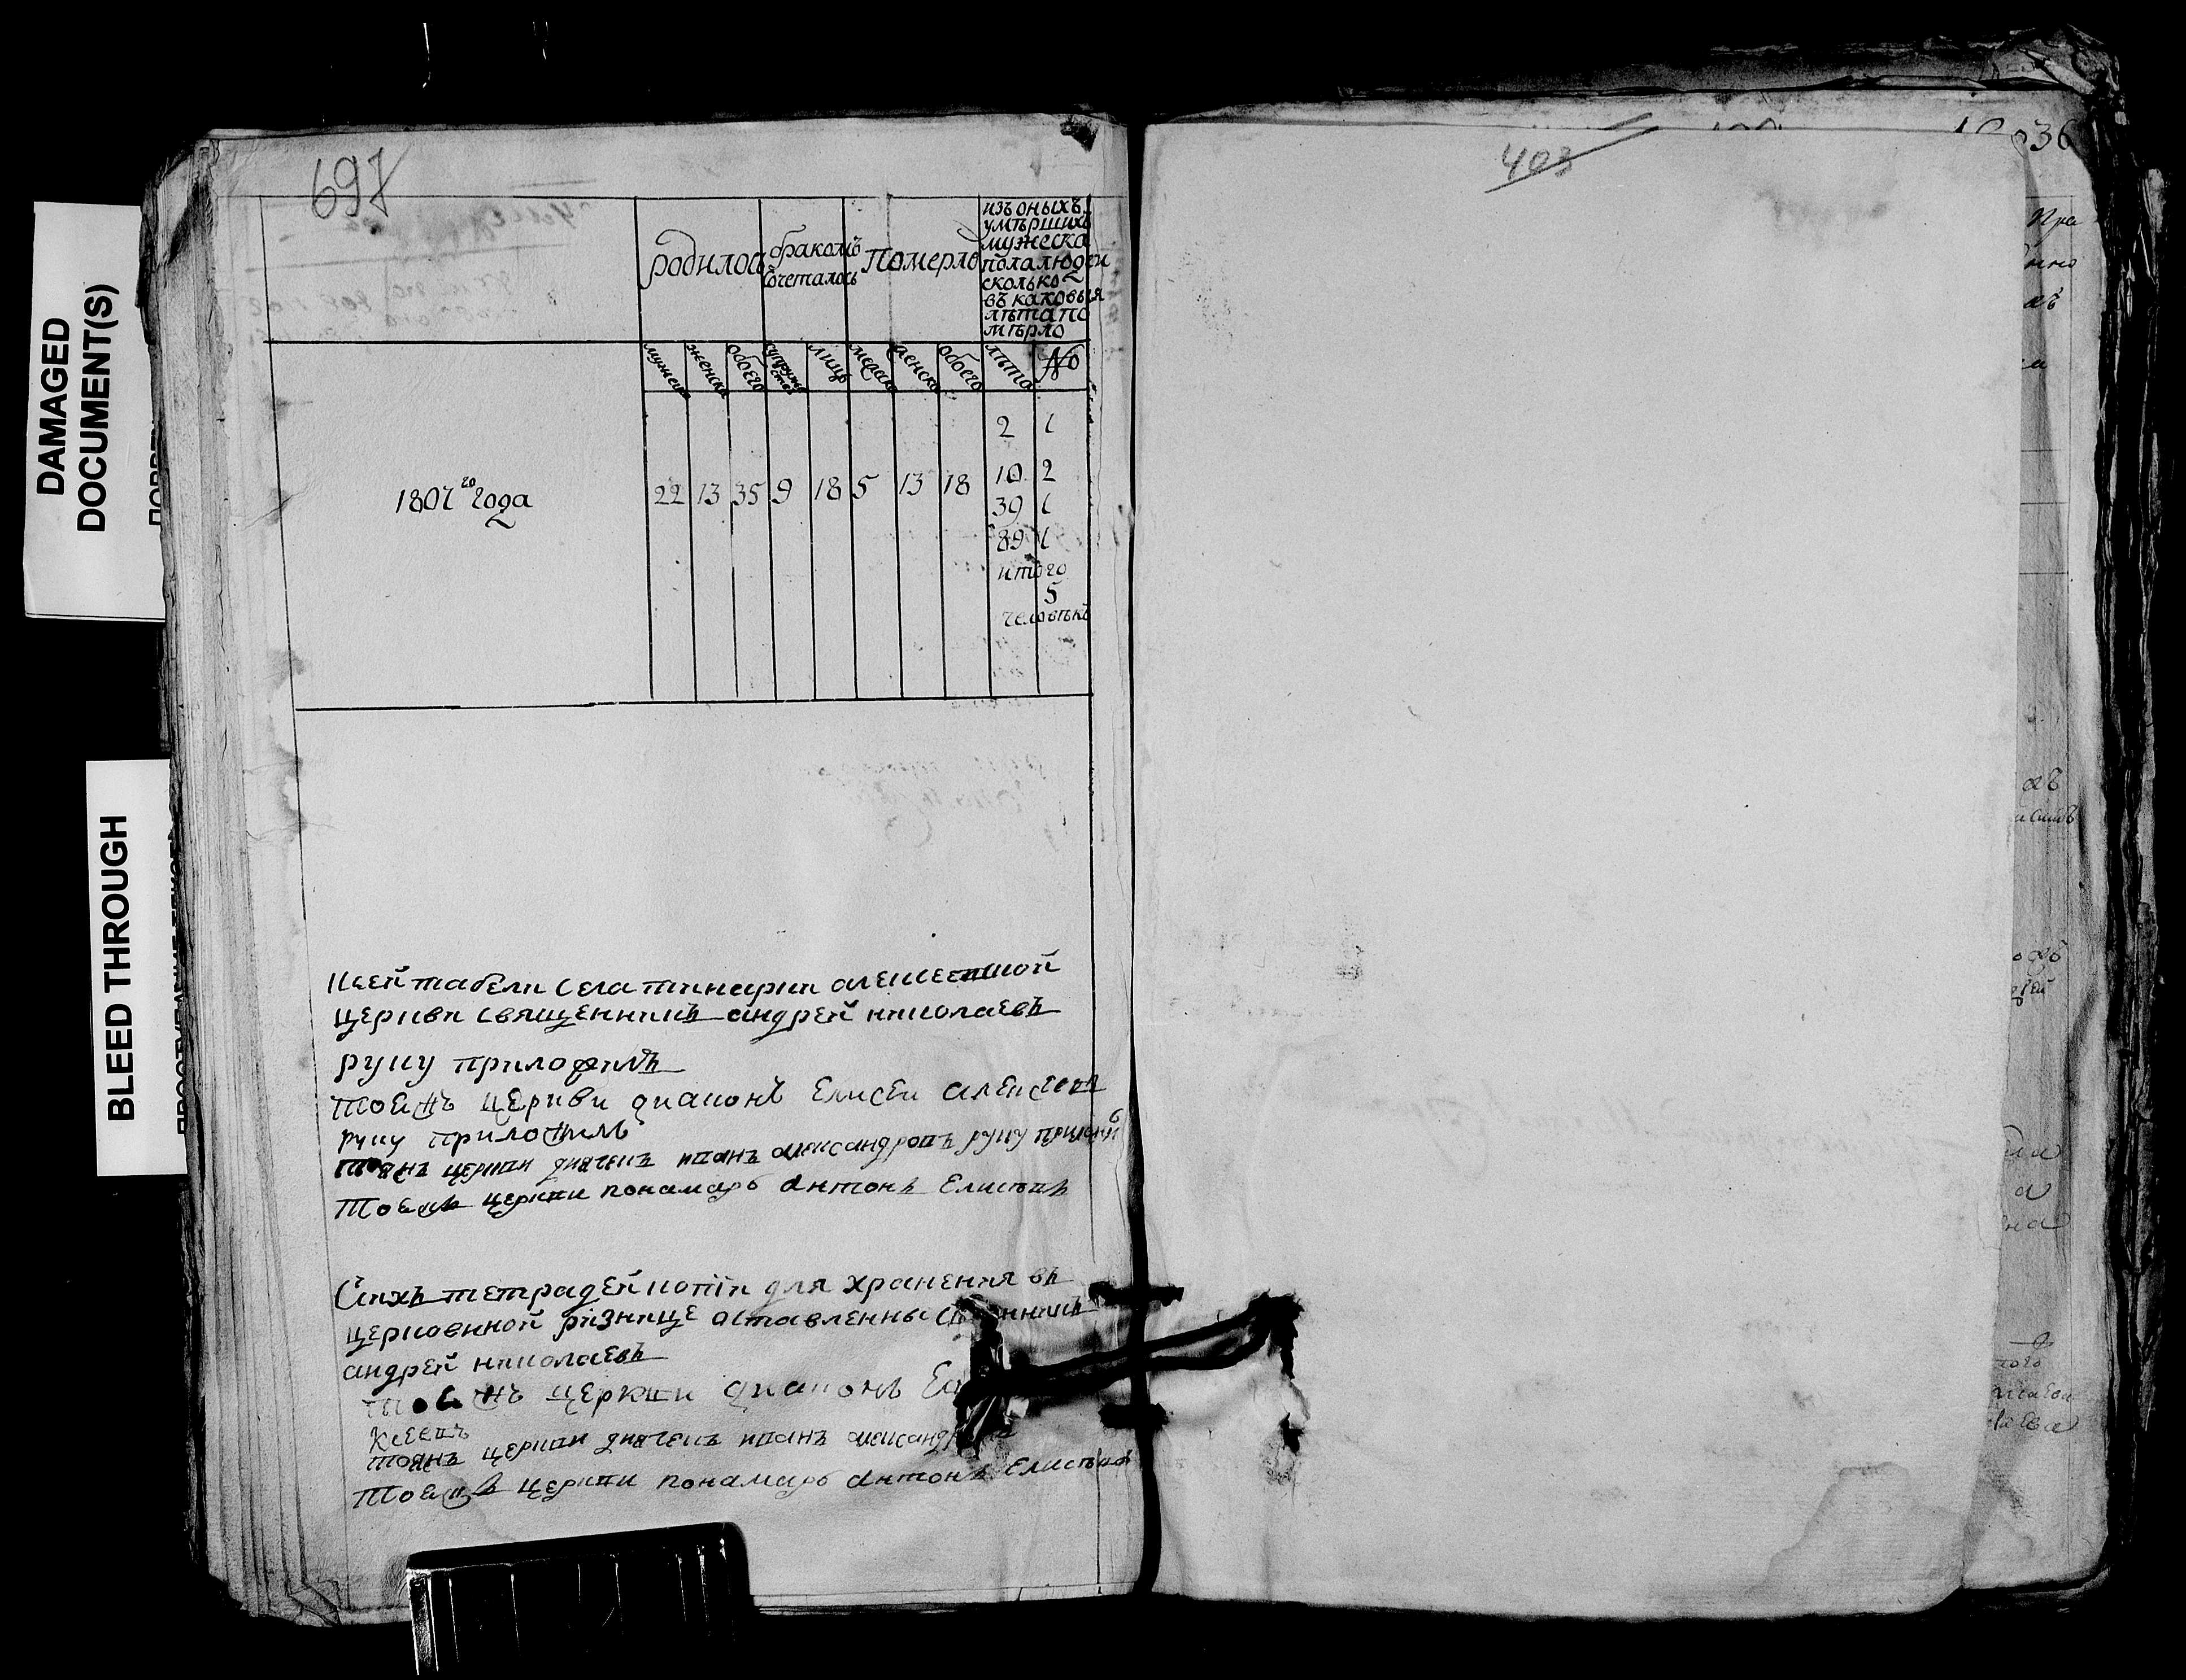 DAMAGED
DOCUMENT(S)
BLEED THROUGH
697
403
36
родилось
бракомъ
сочеталось
Померло
изъ оныхъ
умѣршихъ
мужеска
пола людей
сколько
въ каковыя
лѣта по
мѣрло
мужеск женска обоего лицъ женска обоего лѣта №
2 1
1807го года 22 13 35 9 18 5 13 18 10 2
39 1
89 1
итого
5
человѣкъ
Ксей табели села
церкви священникъ андрей николаевъ
руку приложилъ
тоежъ церкви диаконъ Елисеи алексеевъ
руку приложилъ
тояжъ церкви диячекъ иванъ александровъ руку приложи
тоежъ церкви понамарь Антонъ Елисѣевъ
Сихъ тетрадей копіи для хранения въ
церковнной ризнице оставленны
андрей николаевъ
тоежъ церкви диаконъ
ксеевъ
тояжъ церкви диячекъ иванъ
тоежъ церкви понамарь Антонъ Елисѣевъ